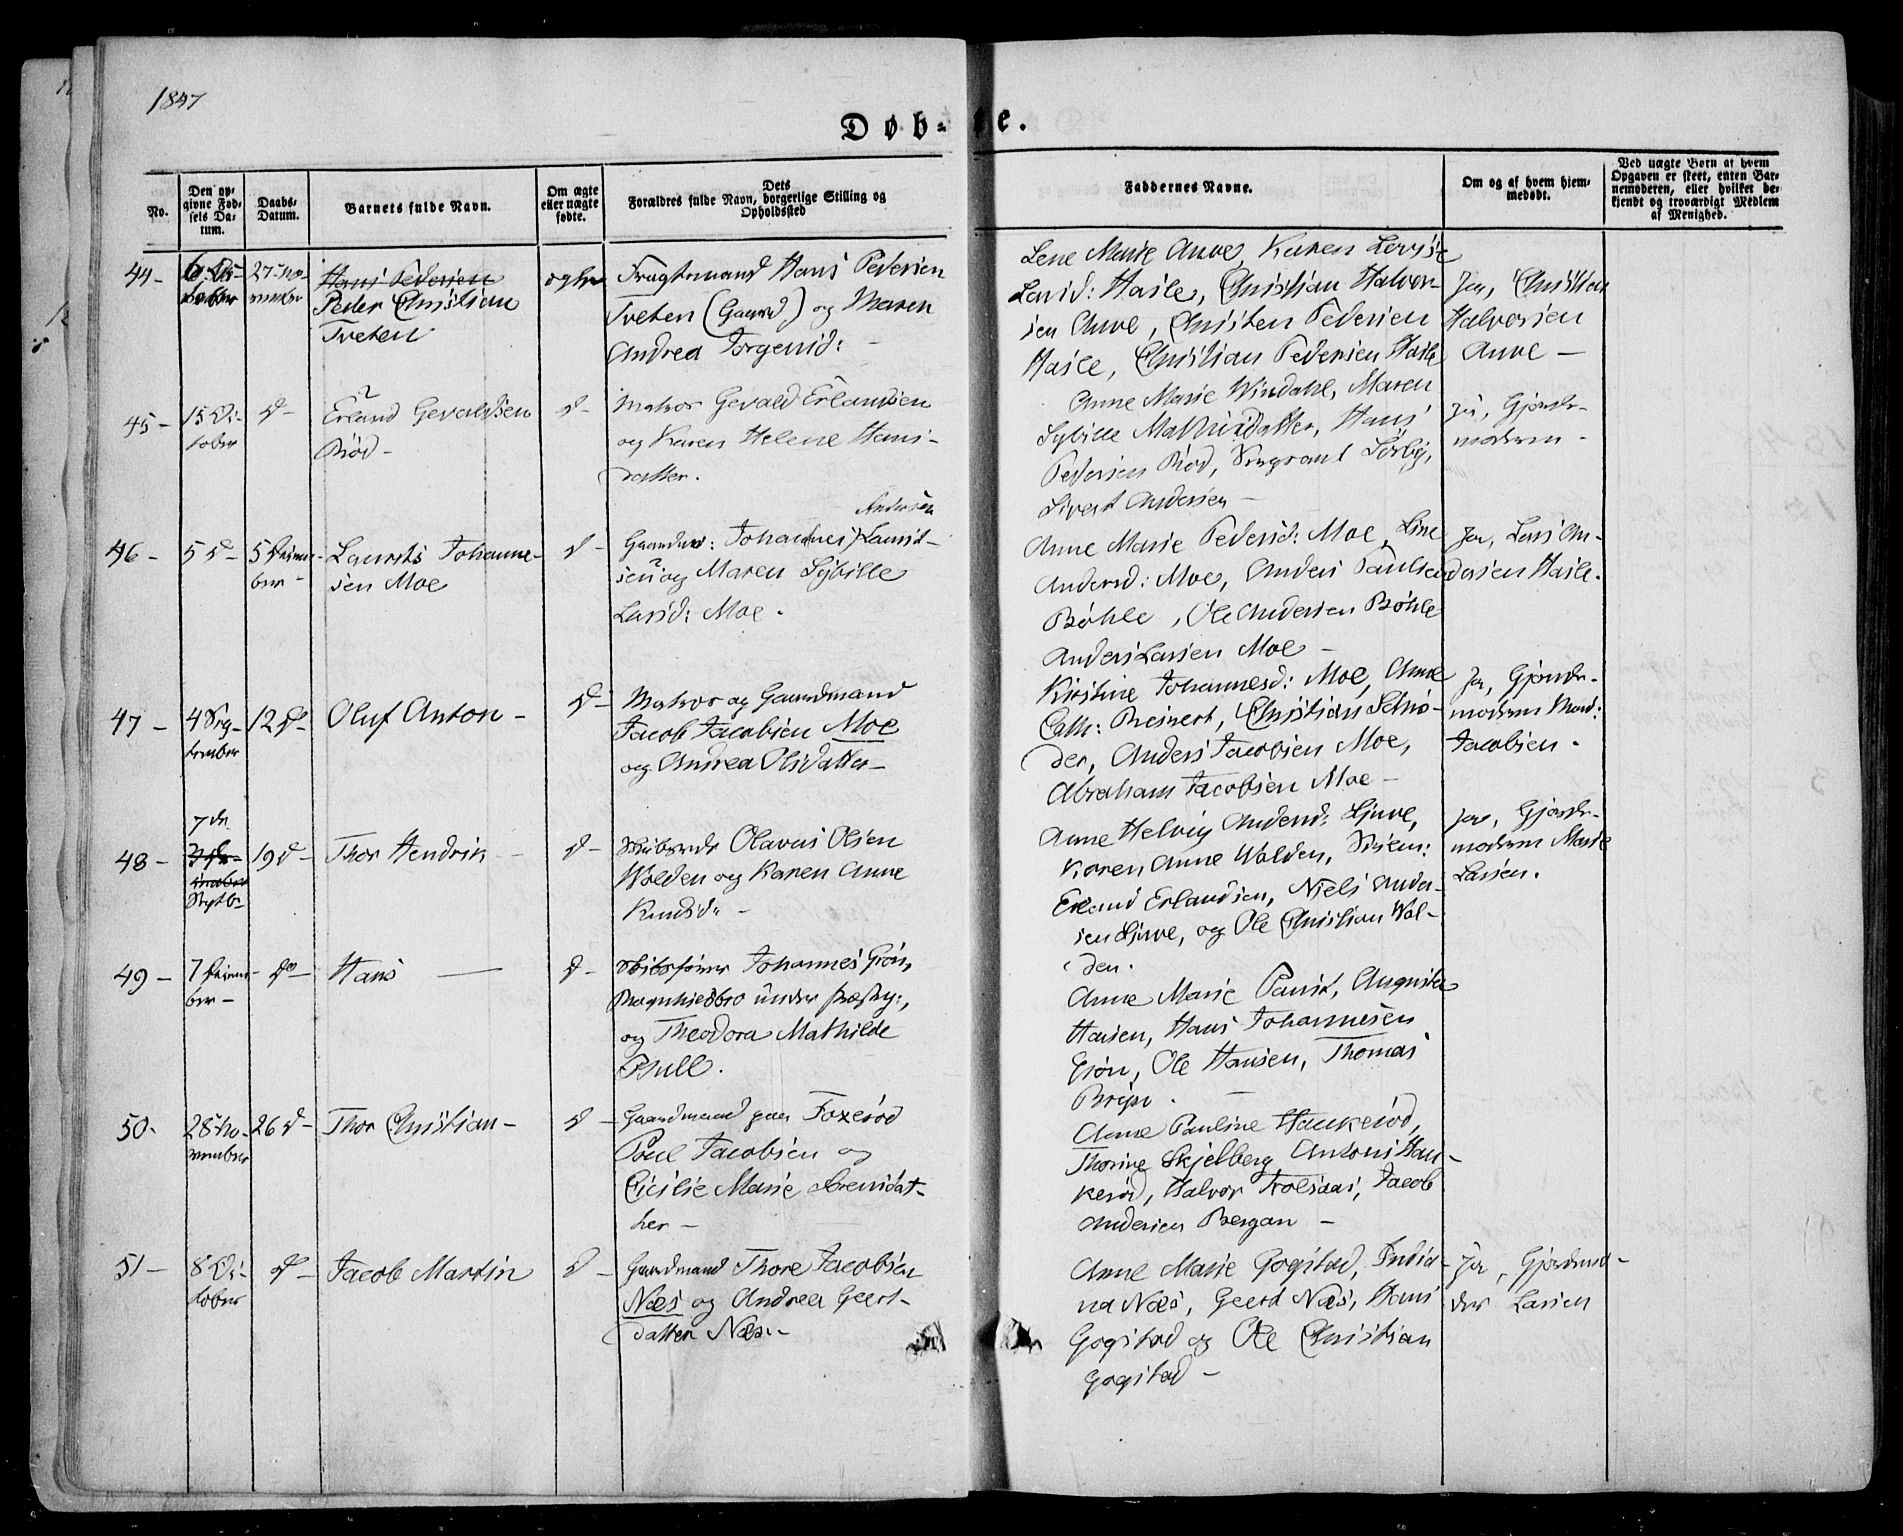 1847
Døb-
e.
No.
Den op-
givne Fød-
sels Da-
tum.
Daabs-
Datum.
Barnets fulde Navn.
Om ægte
eller uægte
fødte.
Dets
Forældres fulde Navn, borgerlige Stilling og
Opholdssted
Faddernes Navne.
Om og af hvem hjem-
medøbt.
Ved uægte Børn af hvem
Opgaven er skeet, enten Bar-
nemoderen, eller hvilket be-
kjendt og troværdigt Medlem
af Menighed.
44-
6
tober
27 No-
vember
Hans Pedersen
Peder Christian
Tveten
ægte
Fragtemand Hans Pedersen
Tveten (Gaard) og Maren
Andrea Jørgensd: -
Lene Marie Anve, Karen Lovise
Larsd: Hasle, Christian Halvor-
sen Anve, Christen Pedersen
Hasle, Christian Pedersen Hasle
Ja, Christian
Halvorsen
Anve -
45-
15 Oc-
tober
d-
Erland Gevaldsen
Röd -
d-
Matros Gevald Erlandsen
og Karen Helene Hans-
datter.
Anne Marie Windahl, Maren
Sybille Mathisdatter, Hans
Pedersen Röd, Sörby,
Sivert Andersen -
Ja, Gjorde-
moderen -
46-
5 d-
5 Decem-
ber -
Laurits Johanne-
sen Moe
d-
Andersen
Gaardm: Johannes Laurit-
sen og Maren Sybille
Larsd: Moe.
Anne Marie Pedersd: Moe, Line
Andersd: Moe, Anders Paulsen
Böhle, Ole Andersen Böhle
Anders Larsen Moe -
Ja, Lars An-
dersen Hasle.
47-
4 Sep-
tember
12 d-
Oluf Anton -
d-
Matros og Gaardmand
Jacob Jacobsen Moe
og Andrea Olsdatter -
Kirstine Johannesd: Moe, Anne
Cath: Reinert, Christian Schrö-
der, Anders Jacobsen Moe,
Abraham Jacobsen Moe -
Ja, Gjorde-
moderen Mad:
Jacobsen.
48-
7de
Septbr
19 d-
Thor Hendrik -
d-
Olavus Olsen
Wolden og Karen Anne
Knudsd: -
Anne Helvig Andersd: Hjuve,
Karen Anne Wolden,
Erland Erlandsen, Niels Ander-
sen Hjuve, og Ole Christian Wol-
den.
Ja, Gjorde-
moderen Marie
Larsen.
49-
7 Decem-
ber -
do -
Hans -
d-
Skibsfører Johannes Grön,
Ragnhildsbro under Præsteg:,
og Theodora Mathilde
Bull.
Anne Marie Paust, Augusta
Hansen, Hans Johannesen
Grön, Ole Hansen, Thomas
50-
28 No-
vember
26 d-
Thor Christian -
d-
Gaardmand paa Foxeröd
Poul Jacobsen og
Cicilie Marie Sörensdat-
ter -
Anne Pauline Haukeröd,
Thorine Skjelberg, Anton Hau-
keröd, Halvor Trolsaas, Jacob
Andersen Bergan -
51-
8 Oc-
tober
d-
Jacob Martin
d-
Gaardmand Thore Jacobsen
Næs og Andrea Geert-
datter Næs -
Anne Marie Gogstad, India-
na Næs, Geert Næs, Hans
Gogstad og Ole Christian
Gogstad -
Ja, Gjordemo-
der Larsen